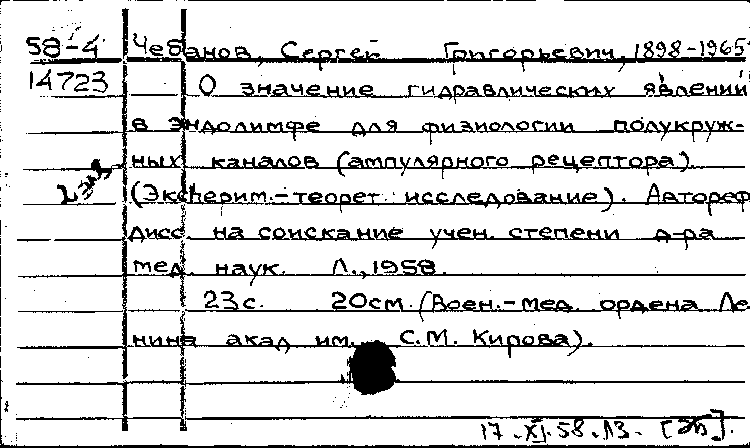 58-4 Чебанов, Сергей Григорьевич, 1898-1965
14723 О значение гидравлических явлений
в эндолимфе для физиологии полукруж-
ных каналов (ампулярного рецептора)
2 экз (Эксперим.-теорет. исследование). Автореф
дисс. на соискание учен. степени д-ра
мед. наук. Л., 1958.
23с. 20см. (Воен.-мед. ордена Ле
нина акад им. С.М. Кирова).
17.XI.58.Л3.